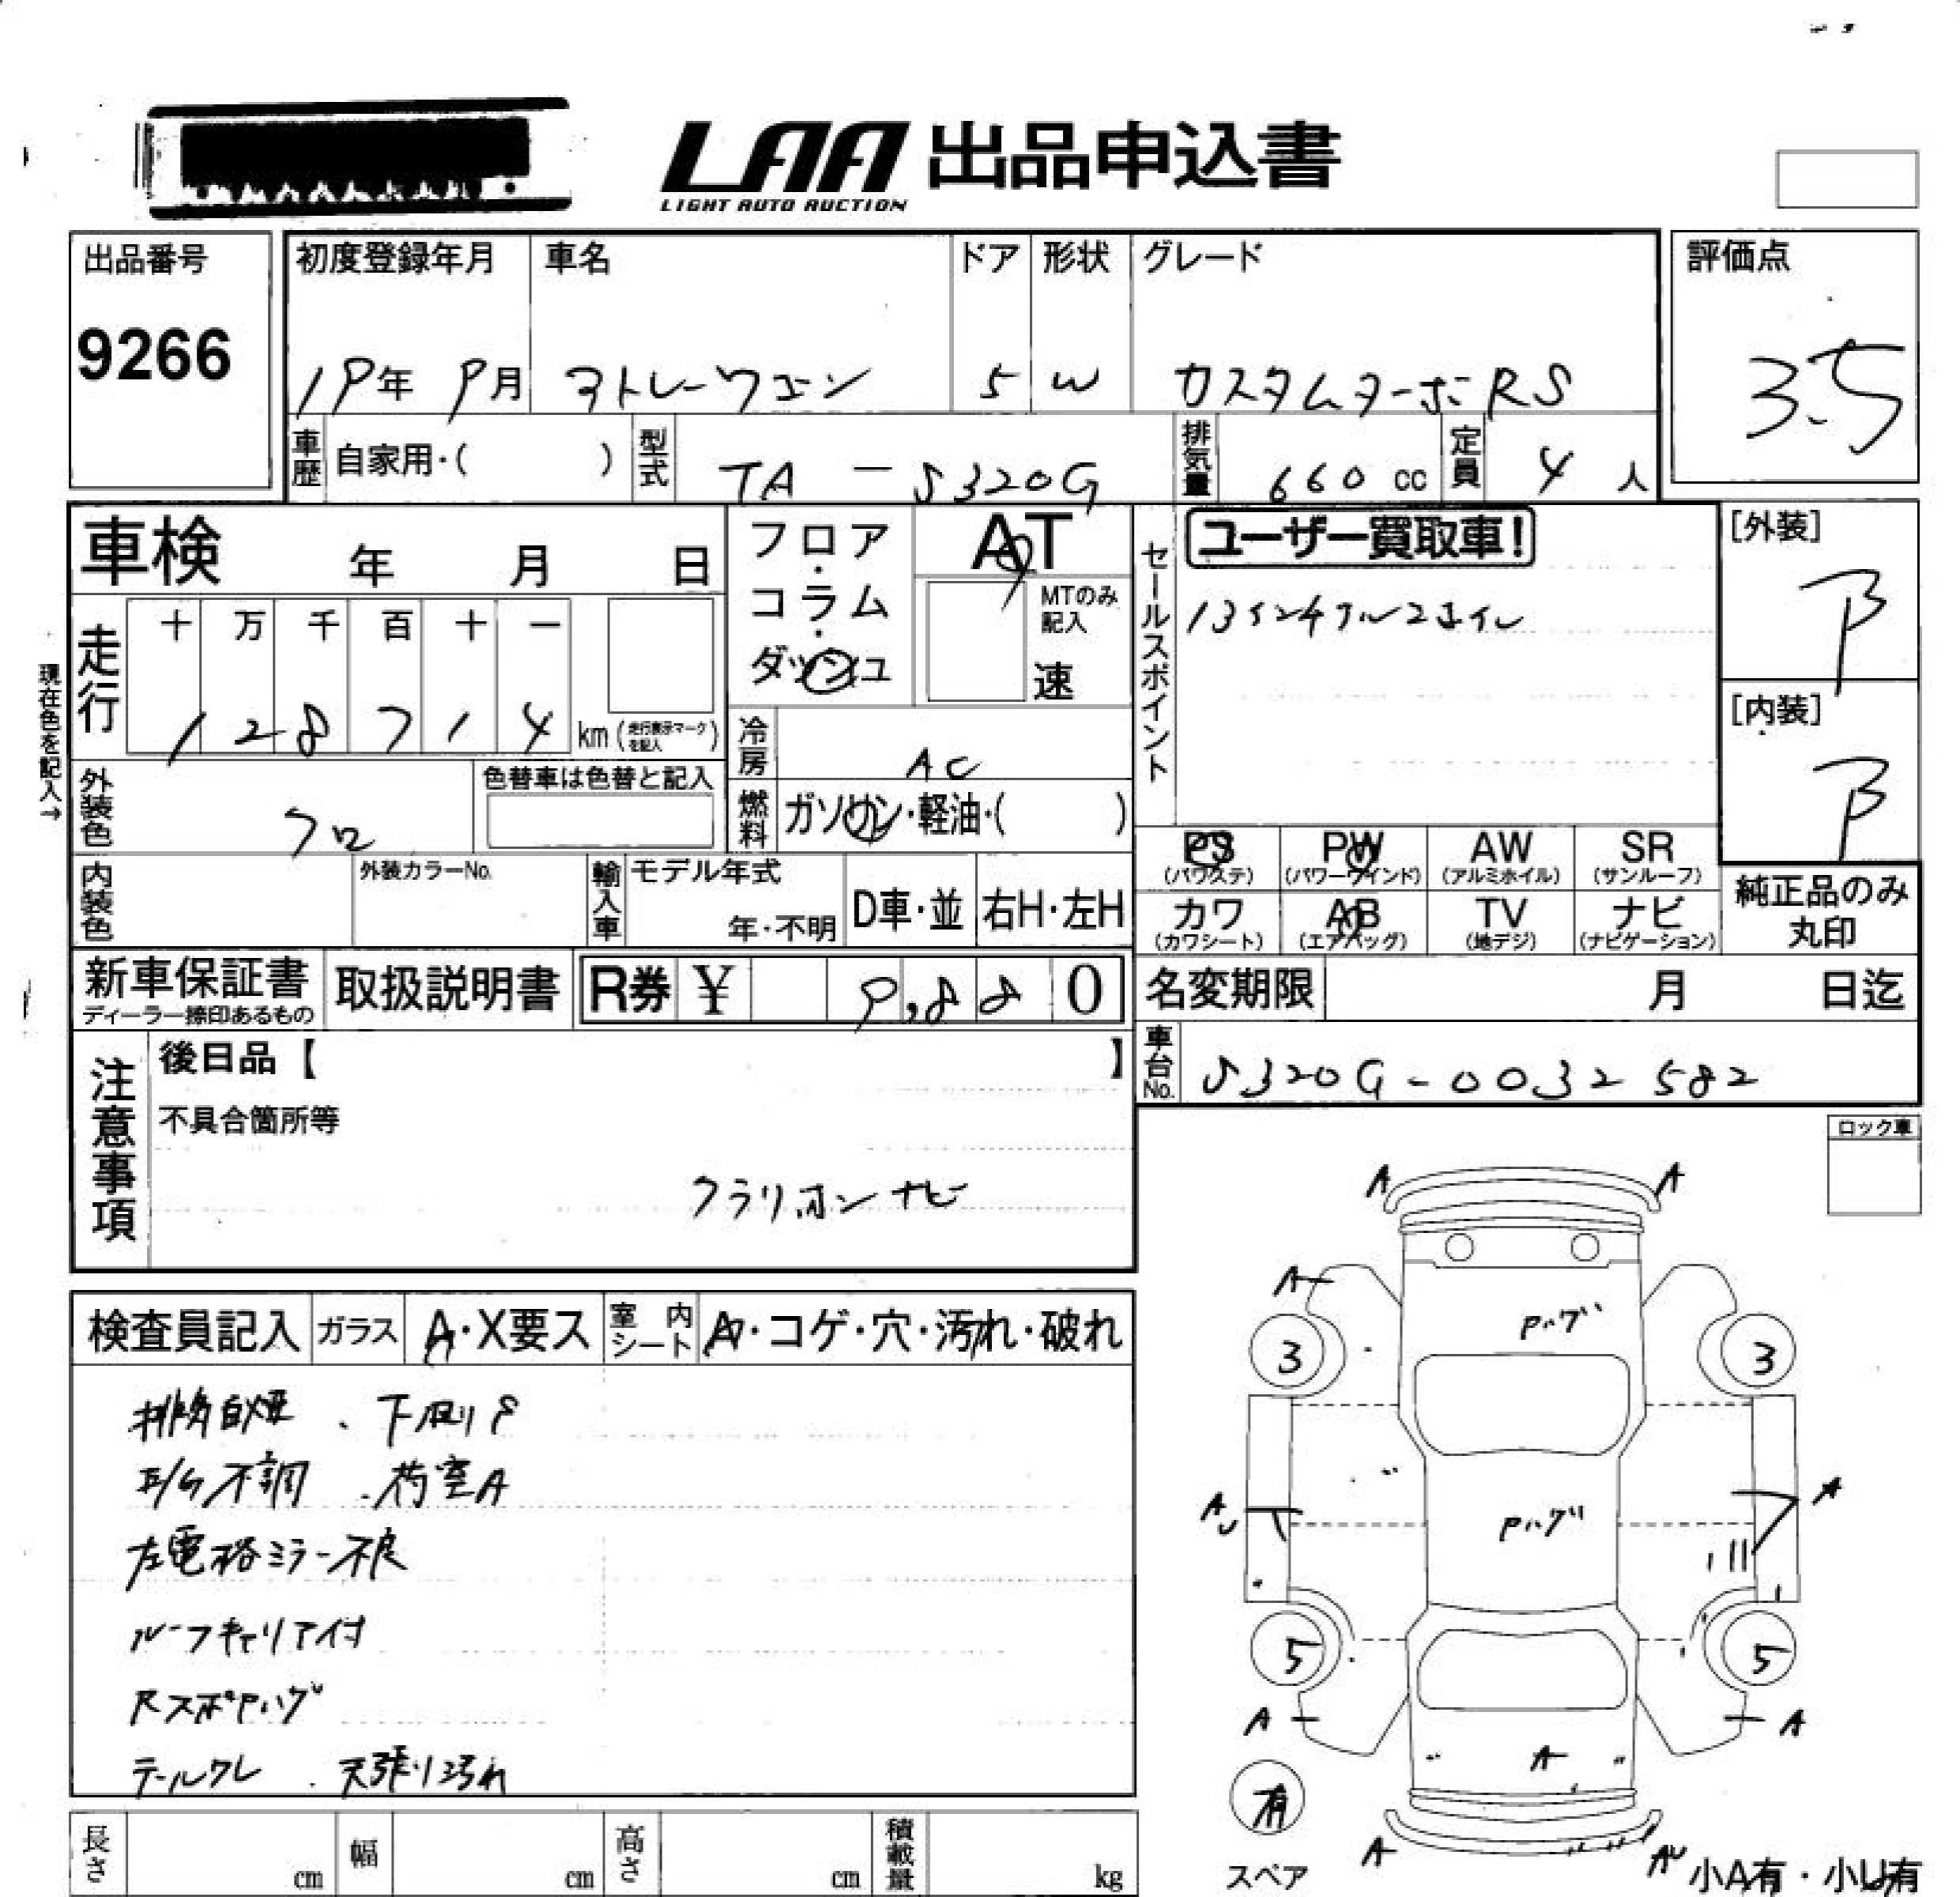 LAA 出品申込書
LIGHT AUTO AUCTION
出品番号 初度登録年月 車名 ドア 形状 グレード 評価点
9266 19年 9月 アトレーワゴン 5 W カスタムターボRS 3.5
車歴 自家用・( ) 型式 TA-S320G 排気量 660 cc 定員 4 人
車検 年 月 日 フロア・コラム・ダッシュ AT セールスポイント ユーザー買取車! [外装]
B
MTのみ記入 速
走行 十 万 千 百 十 一
1 2 8 7 1 4 km (走行表示マークを記入)
現在色を記入→
[内装]
B
冷房 AC
外装色 クロ 色替車は色替と記入 燃料 ガソリン・軽油・( )
PS (パワステ) PW (パワーウインド) AW (アルミホイル) SR (サンルーフ)
カワ (カワシート) AB (エアバッグ) TV (地デジ) ナビ (ナビゲーション) 純正品のみ丸印
内装色 外装カラーNo. 輸入車 モデル年式 年・不明 D車・並 右H・左H
新車保証書 取扱説明書 R券 ¥ 9,880 名変期限 月 日迄
ディーラー捺印あるもの
車台No. S320G-0032582
注意事項 後日品【 】
不具合箇所等
クラリオンナビ
ロック車
検査員記入 ガラス A・X要ス 室内シート A・コゲ・穴・汚れ・破れ
排気白煙 、下廻りS
E/G不調 、荷室A
左電格ミラー不良
ルーフキャリア付
RスポPハゲ
テールワレ 、天張り汚れ
A A
A
Pハゲ
3 3
AU Pハゲ A
5 5
A A A
有
スペア
A AU 小A有・小U有
長さ cm 幅 cm 高さ cm 積載量 kg